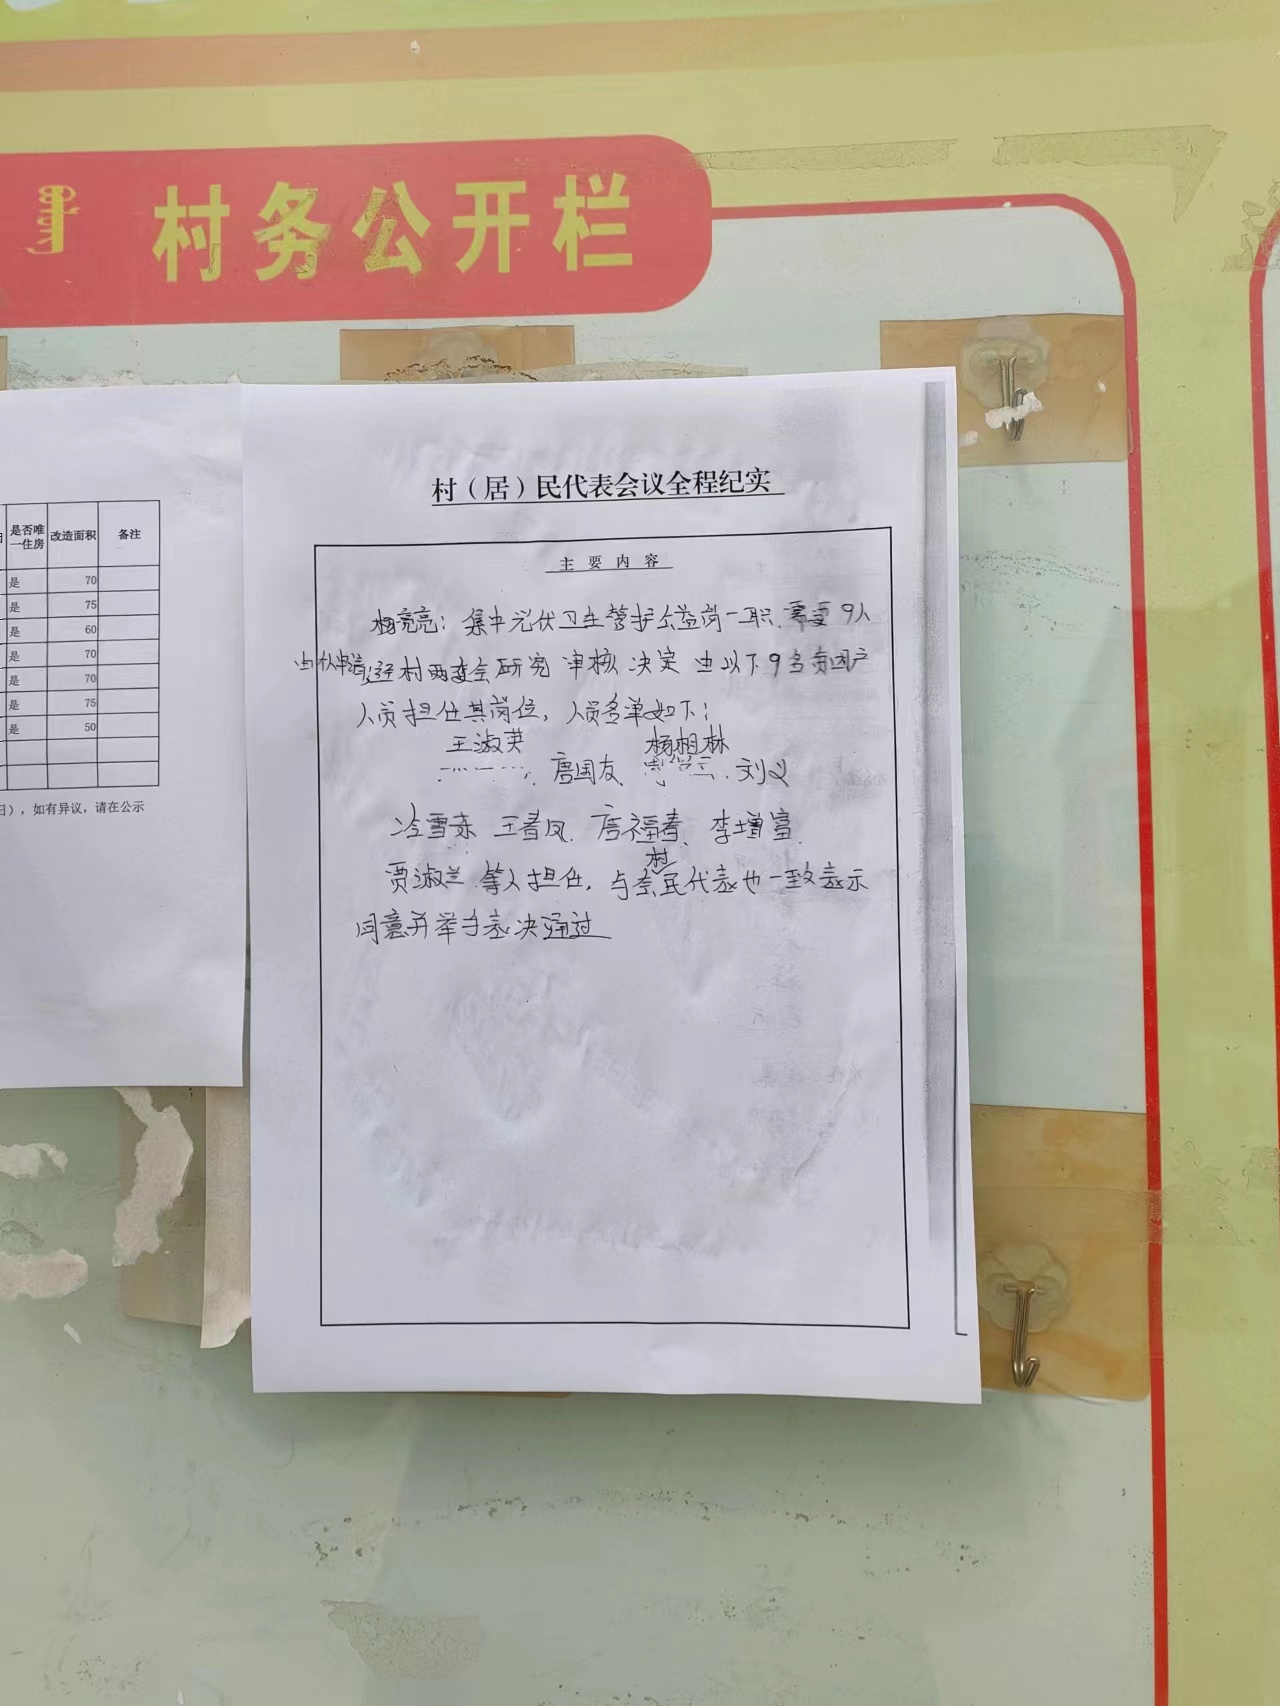 村务公开栏
是否唯一住房 改造面积 备注
是 70
是 75
是 60
是 70
是 70
是 75
是 50
日），如有异议，请在公示
村（居）民代表会议全程纪实
主要内容
杨亮亮：集中光伏卫生管护公益岗一职，需要9人
由个人申请，经村两委会研究 审核 决定 由以下9名贫困户
人员担任其岗位，人员名单如下：
王淑英 杨相林
唐国友、刘义
冷雪东 王春凤、唐福春、李增富、
贾淑兰 等人担任，与会村民代表也一致表示
同意并举手表决通过